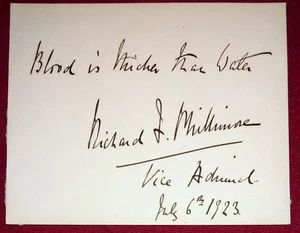 Blood is thicker than Water
Richard F. Phillimore
Vice Admiral
July 6th 1923.